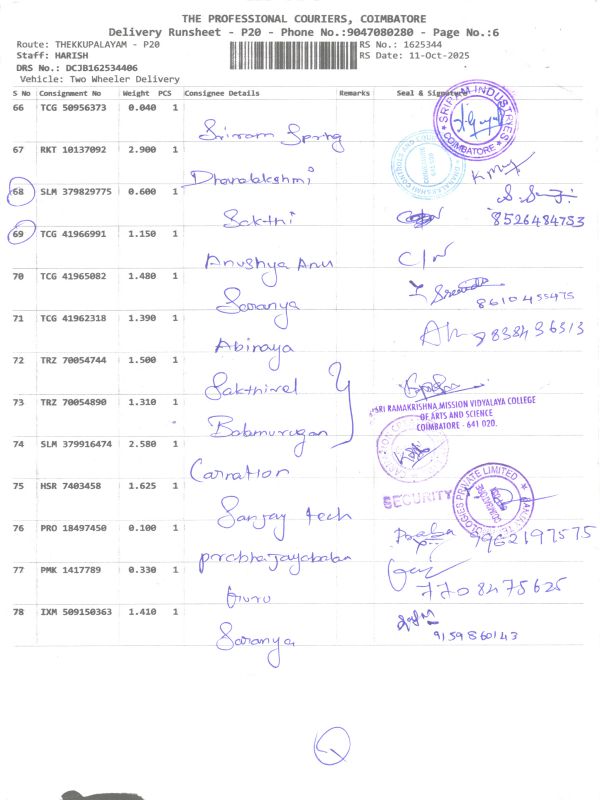 THE PROFESSIONAL COURIERS, COIMBATORE
Delivery Runsheet - P20 - Phone No.:9047080280 - Page No.:6
Route: THEKKUPALAYAM - P20 RS No.: 1625344
Staff: HARISH RS Date: 11-Oct-2025
DRS No.: DCJB162534406
Vehicle: Two Wheeler Delivery
S No Consignment No Weight PCS Consignee Details Remarks Seal & Signature
66 TCG 50956373 0.040 1
Sriram Spring
SRIRAM INDUSTRIES COIMBATORE
67 RKT 10137092 2.900 1
Dhanalakshmi
68 SLM 379829775 0.600 1
Sakthi 8526484753
69 TCG 41966991 1.150 1
Anushya Anu C/N
70 TCG 41965082 1.480 1
Saranya 8610455475
71 TCG 41962318 1.390 1
Abiraya 9838436313
72 TRZ 70054744 1.500 1
Sakthivel
73 TRZ 70054890 1.310 1
SRI RAMAKRISHNA MISSION VIDYALAYA COLLEGE
OF ARTS AND SCIENCE
COIMBATORE - 641 020.
Balamurugan
74 SLM 379916474 2.580 1
Carnation
75 HSR 7403458 1.625 1
SECURITY
Sanjay tech
76 PRO 18497450 0.100 1
prabhajayabalan 9962197575
77 PMK 1417789 0.330 1
Guru 7708475625
78 IXM 509150363 1.410 1
Saranya 9159860143